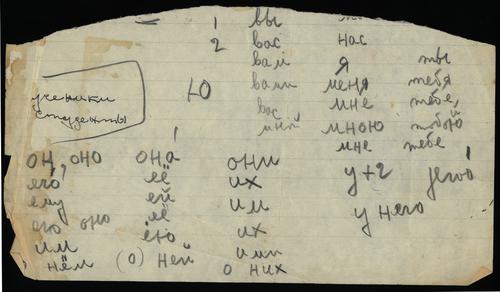 1 вы
2 вас нас
вам я ты
ю вами меня тебя
ученики вас мне тебе,
студенты мной мною тобой
мне тебе
он, оно она они у+2 уего
его её их
ему ей им у него
его оно её их
им ею ими
нём (о) ней о них